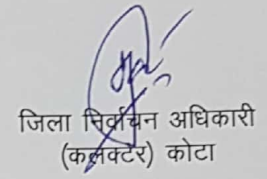 जिला निर्वाचन अधिकारी
(कलेक्टर) कोटा